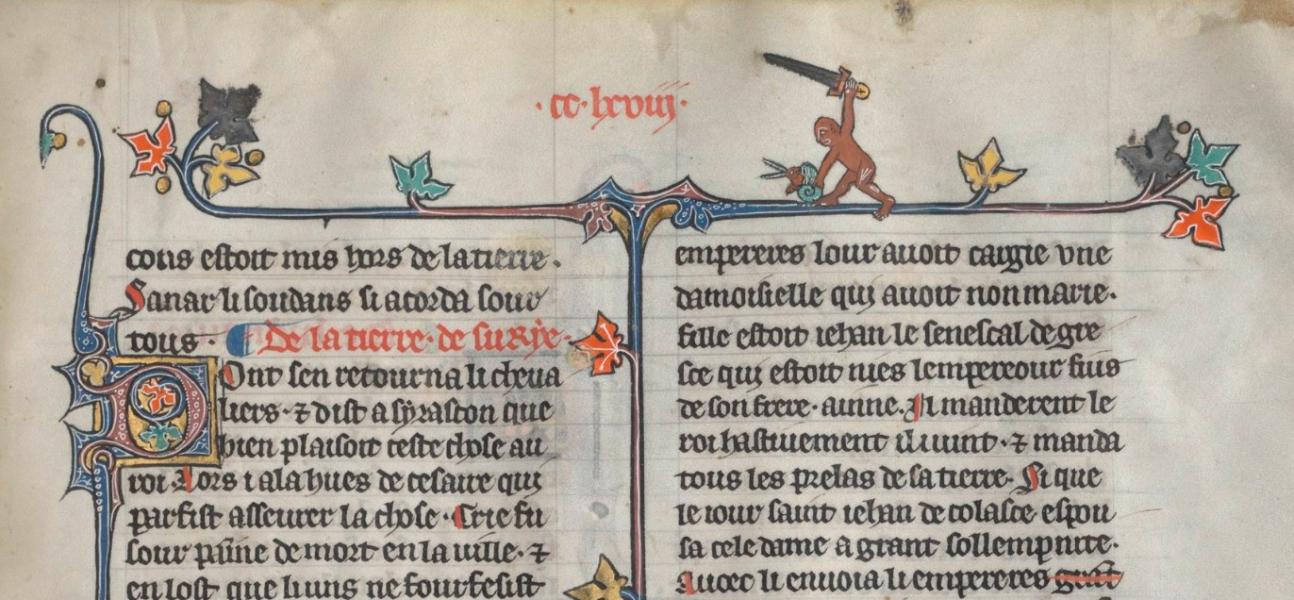 ·cc·lxviij·
cons estoit mis hors de la tierre.
Sanar li soudans si acorda sour
tous. De la tierre de surije.
Dont sen retourna li cheua
liers ⁊ dist a syrascon que
bien plaisoit ceste chose au
roi. Lors i ala hues de cesaire qui
parfist asseurer la chose. Crie fu
sour paine de mort en la uille. ⁊
en lost que li uns ne fourfesist
empereres lour auoit cargie vne
damoisielle qui auoit non marie.
fille estoit iehan le senescal de gre
sce qui estoit nies lempereour fius
de son frere ainne. Il manderent le
roi hastiuement il i uint. ⁊ manda
tous les prelas de sa tierre. Si que
le iour saint iehan de colasce espou
sa cele dame a grant sollempnite.
Auoec li enuoia li empereres